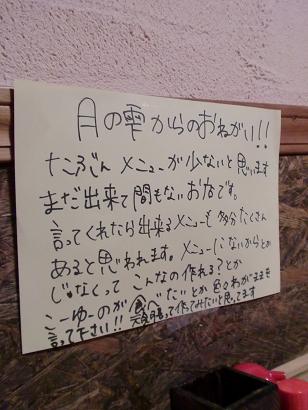 月の雫からのおねがい!!
たぶん メニューが少ないと思います
まだ出来て間もないお店です。
言ってくれたら出来るメニューも多分たくさん
あると思われます。メニューにないからとか
じゃなくって こんなの作れる?とか
こーゆーのが食べたいとか色々わがままを
言って下さい!! 頑張って作ってみたいと思ってます